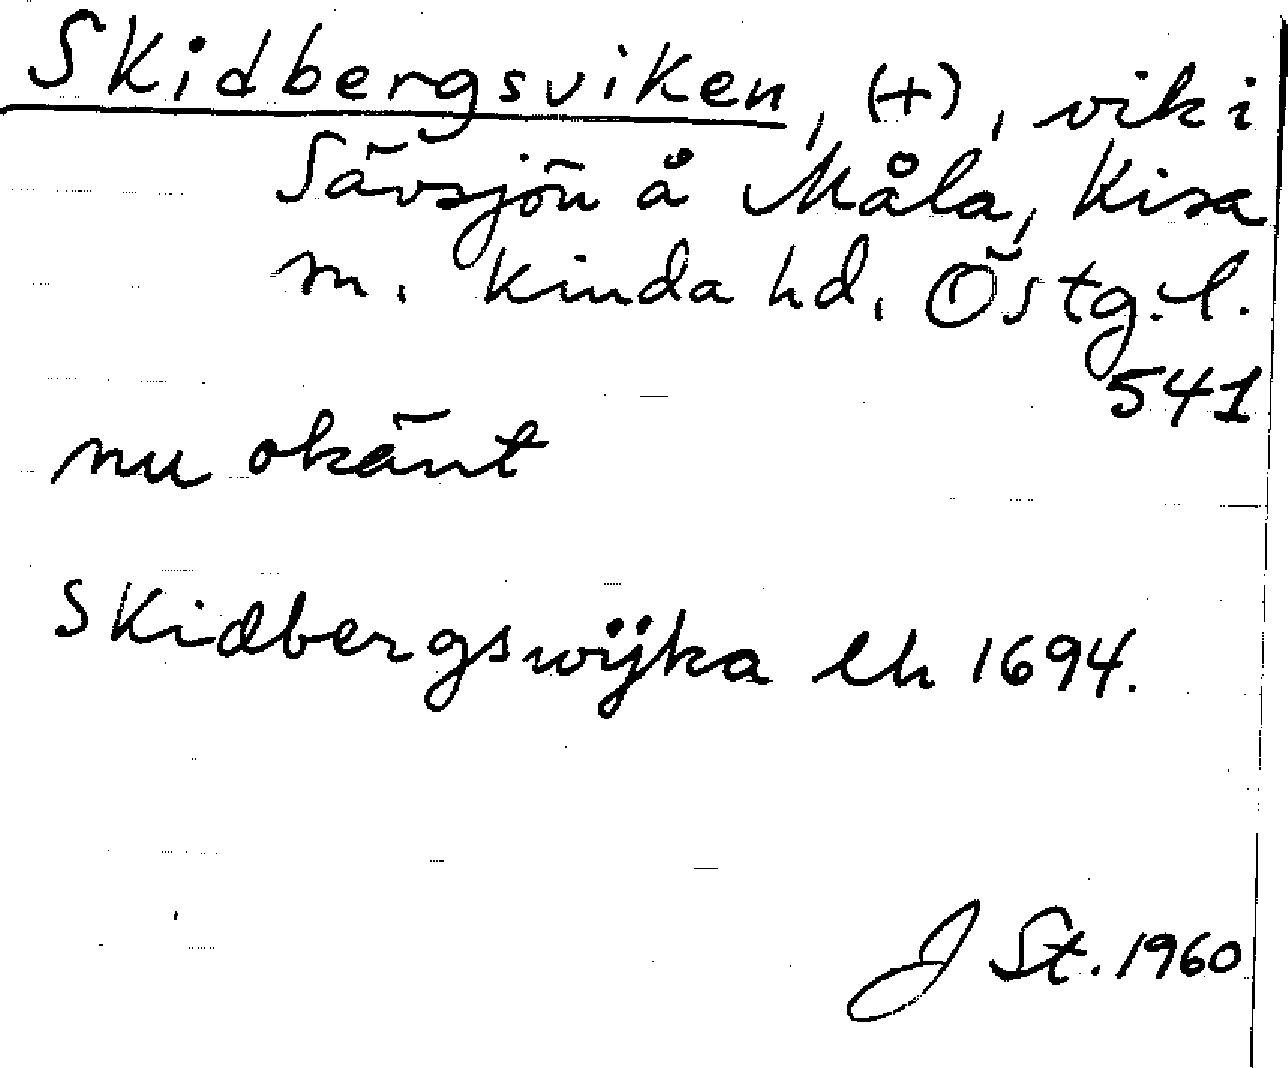 Skidbergsviken, (+), vik i
Sävsjön å Måla, Kisa
m. Kinda hd, Östg. l.
541
nu okänt
Skidbergswÿka lh 1694.
J St. 1960